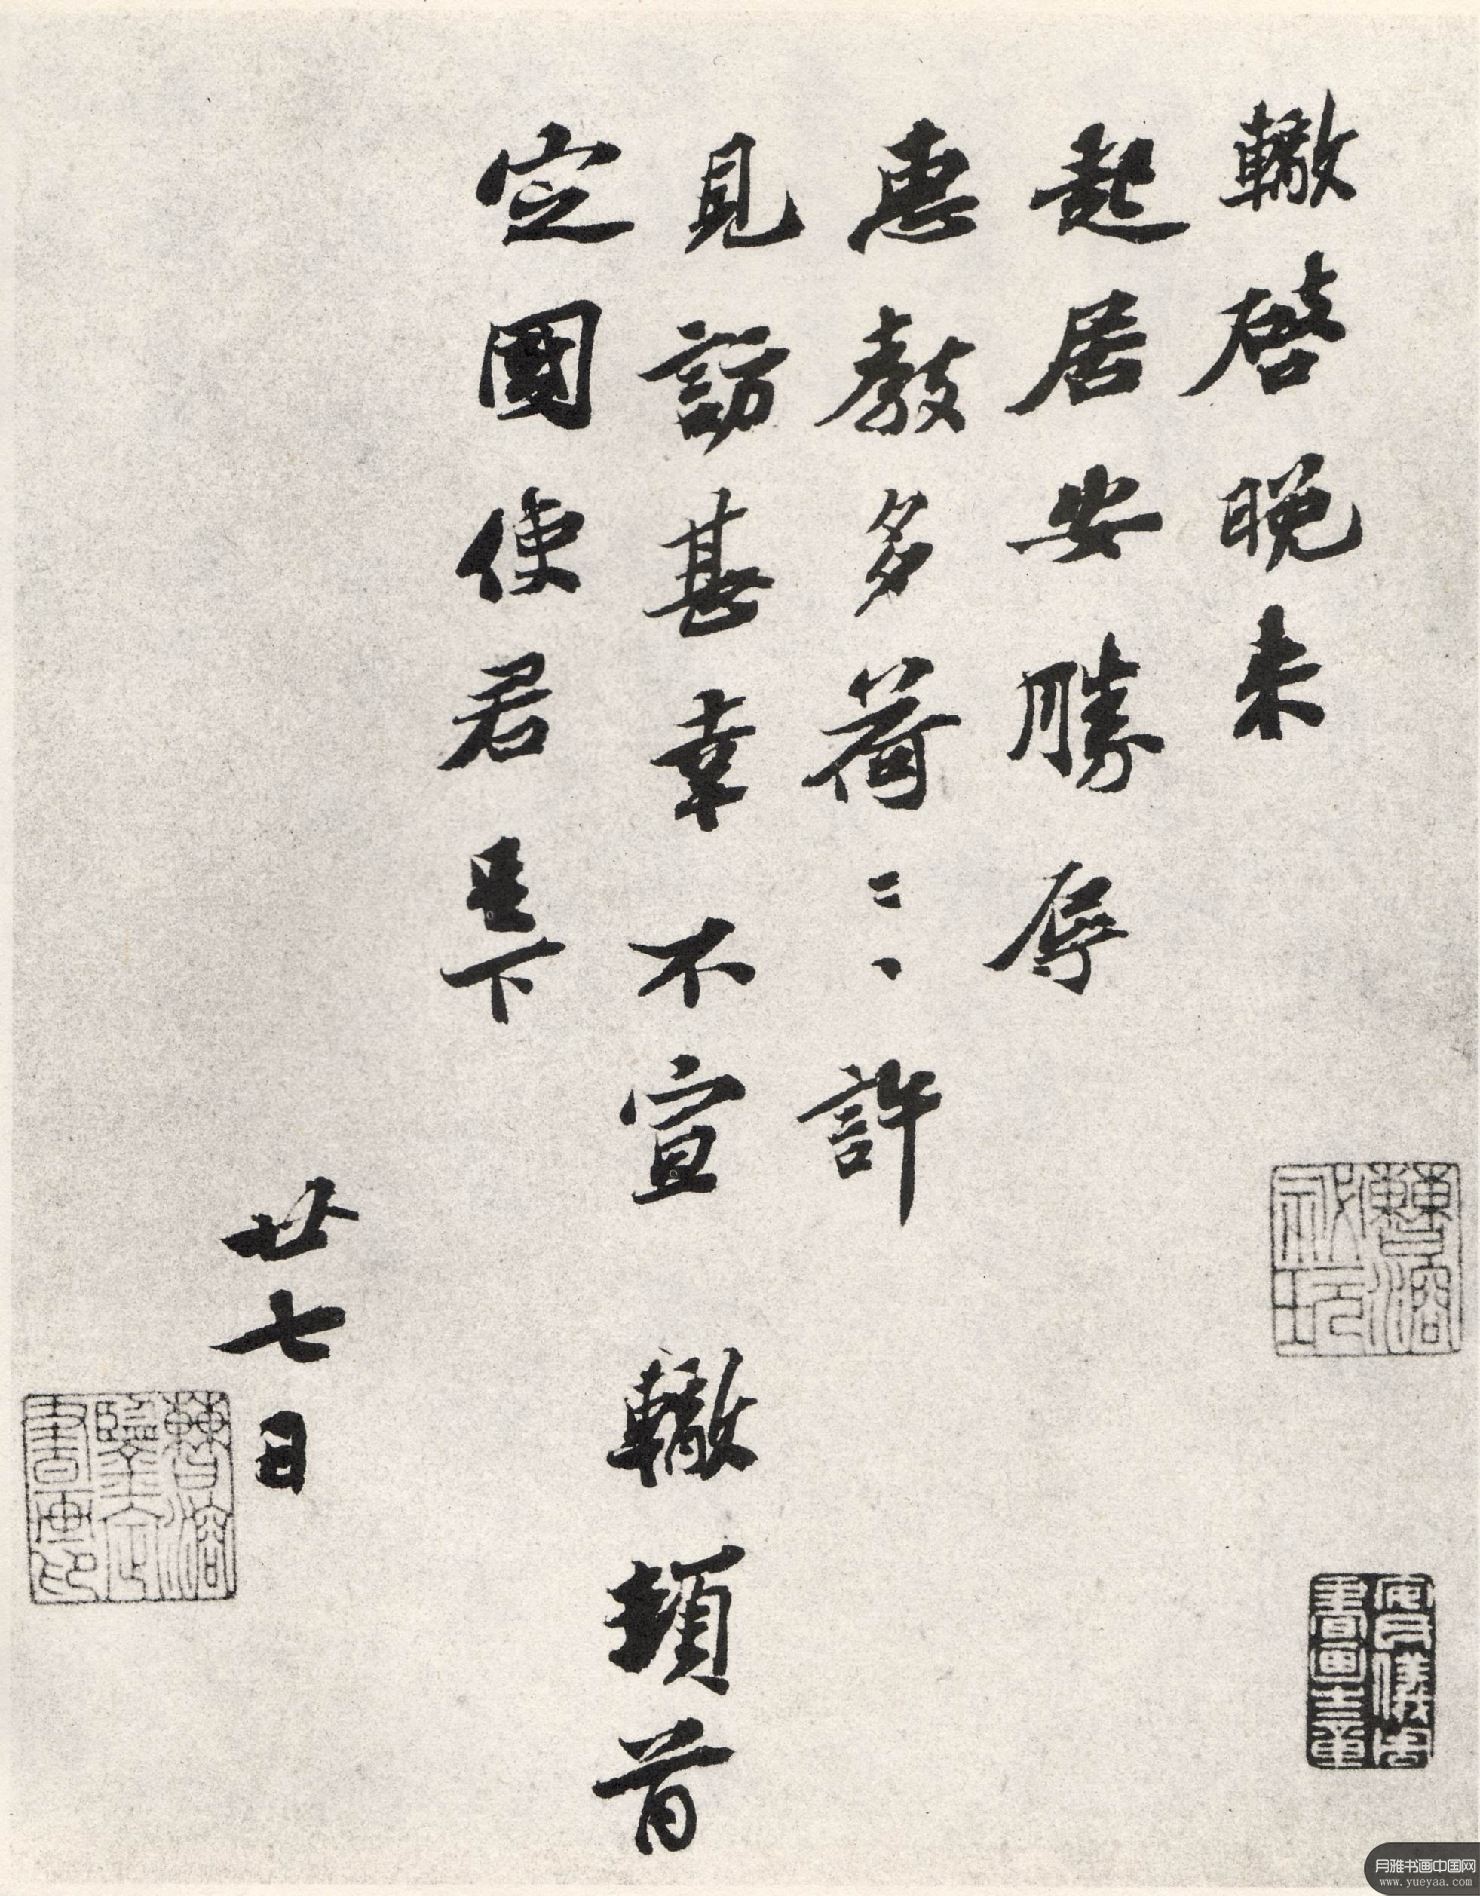 轍啓晚来
起居安勝辱
惠教多荷〻〻許
見訪甚幸不宣 轍頓首
定國使君足下
廿七日
書畫
月雅书画中国网
www.yueyaa.com